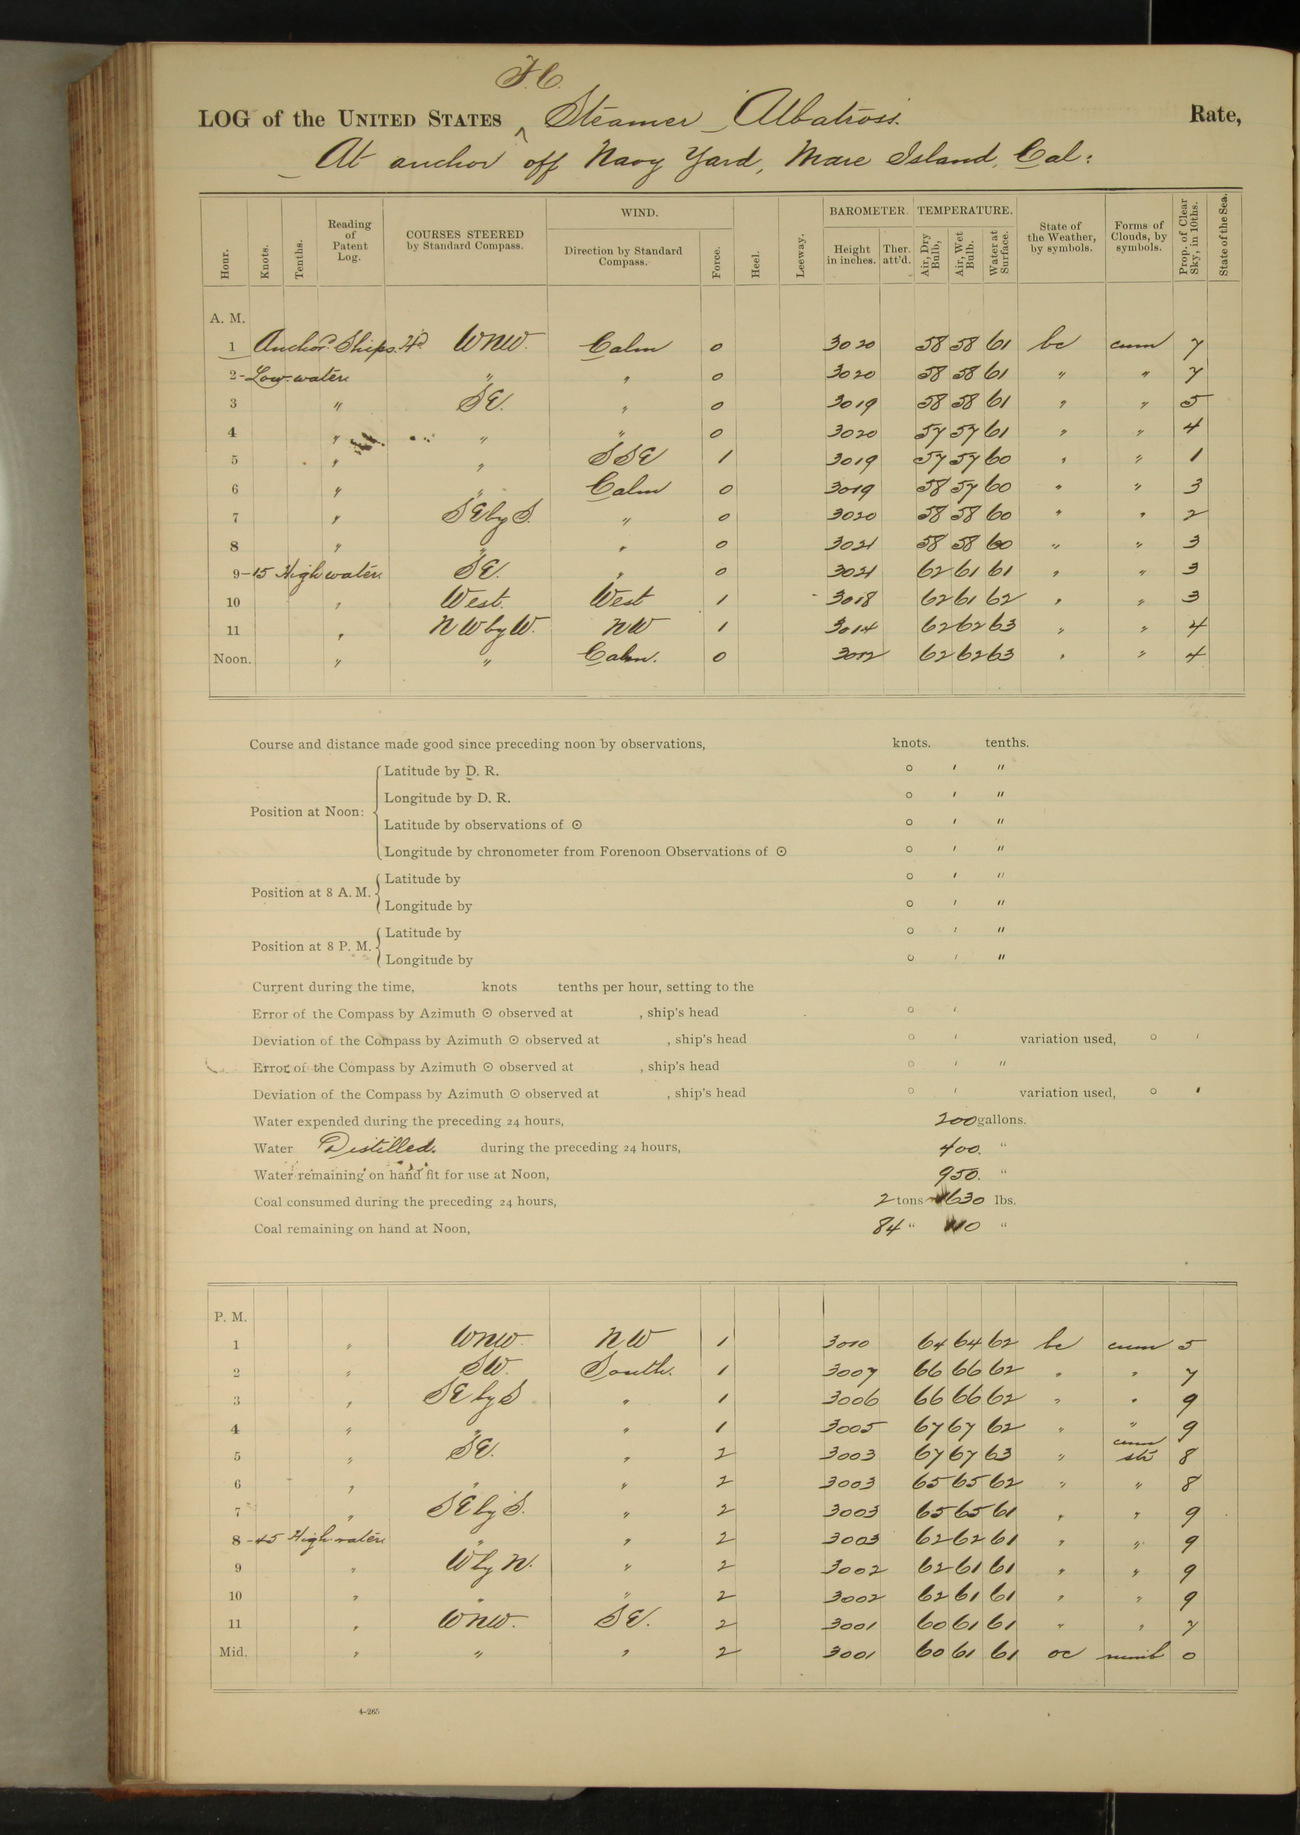 F.C.
LOG of the UNITED STATES ^ Steamer Albatross. Rate,
At anchor off Navy Yard, Mare Island, Cal:
Hour. Knots. Tenths. Reading of Patent Log. COURSES STEERED by Standard Compass. WIND. Direction by Standard Compass. Force. Heel. Leeway. BAROMETER. Height in inches. Ther. att'd. TEMPERATURE. Air, Dry Bulb. Air, Wet Bulb. Water at Surface. State of the Weather, by symbols. Forms of Clouds, by symbols. Prop. of Clear Sky, in 10ths. State of the Sea.
A. M.
1 Anchord Ships Hd WNW. Calm 0 3020 58 58 61 bc cum 7
2 - Low water " " 0 3020 58 58 61 " " 7
3 " SE. " 0 3019 58 58 61 " " 5
4 " " " 0 3020 57 57 61 " " 4
5 " " SSE 1 3019 57 57 60 " " 1
6 " " Calm 0 3019 58 57 60 " " 3
7 " SE by S. " 0 3020 58 58 60 " " 2
8 " " " 0 3021 58 58 60 " " 3
9 - 15 High water SE. " 0 3021 62 61 61 " " 3
10 " West. West 1 3018 62 61 62 " " 3
11 " NW by W. NW 1 3014 62 62 63 " " 4
Noon. " " Calm. 0 3012 62 62 63 " " 4
Course and distance made good since preceding noon by observations, knots. tenths.
Position at Noon: Latitude by D. R. ° ' "
Longitude by D. R. ° ' "
Latitude by observations of ⊙ ° ' "
Longitude by chronometer from Forenoon Observations of ⊙ ° ' "
Position at 8 A. M. Latitude by ° ' "
Longitude by ° ' "
Position at 8 P. M. Latitude by ° ' "
Longitude by ° ' "
Current during the time, knots tenths per hour, setting to the
Error of the Compass by Azimuth ⊙ observed at , ship's head ° '
Deviation of the Compass by Azimuth ⊙ observed at , ship's head ° ' variation used, ° '
Error of the Compass by Azimuth ⊙ observed at , ship's head ° ' "
Deviation of the Compass by Azimuth ⊙ observed at , ship's head ° ' variation used, ° '
Water expended during the preceding 24 hours, 200 gallons.
Water Distilled. during the preceding 24 hours, 400. "
Water remaining on hand fit for use at Noon, 950. "
Coal consumed during the preceding 24 hours, 2 tons 1630 lbs.
Coal remaining on hand at Noon, 84 " 110 "
P. M.
1 " WNW. NW 1 3010 64 64 62 bc cum 5
2 " SW. South. 1 3007 66 66 62 " " 7
3 " SE by S " 1 3006 66 66 62 " " 9
4 " " " 1 3005 67 67 62 " " 9
5 " SE. " 2 3003 67 67 63 " cum str 8
6 " " " 2 3003 65 65 62 " " 8
7 " SE by S. " 2 3003 65 65 61 " " 9
8 - 45 High water " " 2 3003 62 62 61 " " 9
9 " W by N. " 2 3002 62 61 61 " " 9
10 " " " 2 3002 62 61 61 " " 9
11 " WNW. SE. 2 3001 60 61 61 " " 7
Mid. " " " 2 3001 60 61 61 oc nimb 0
4-265